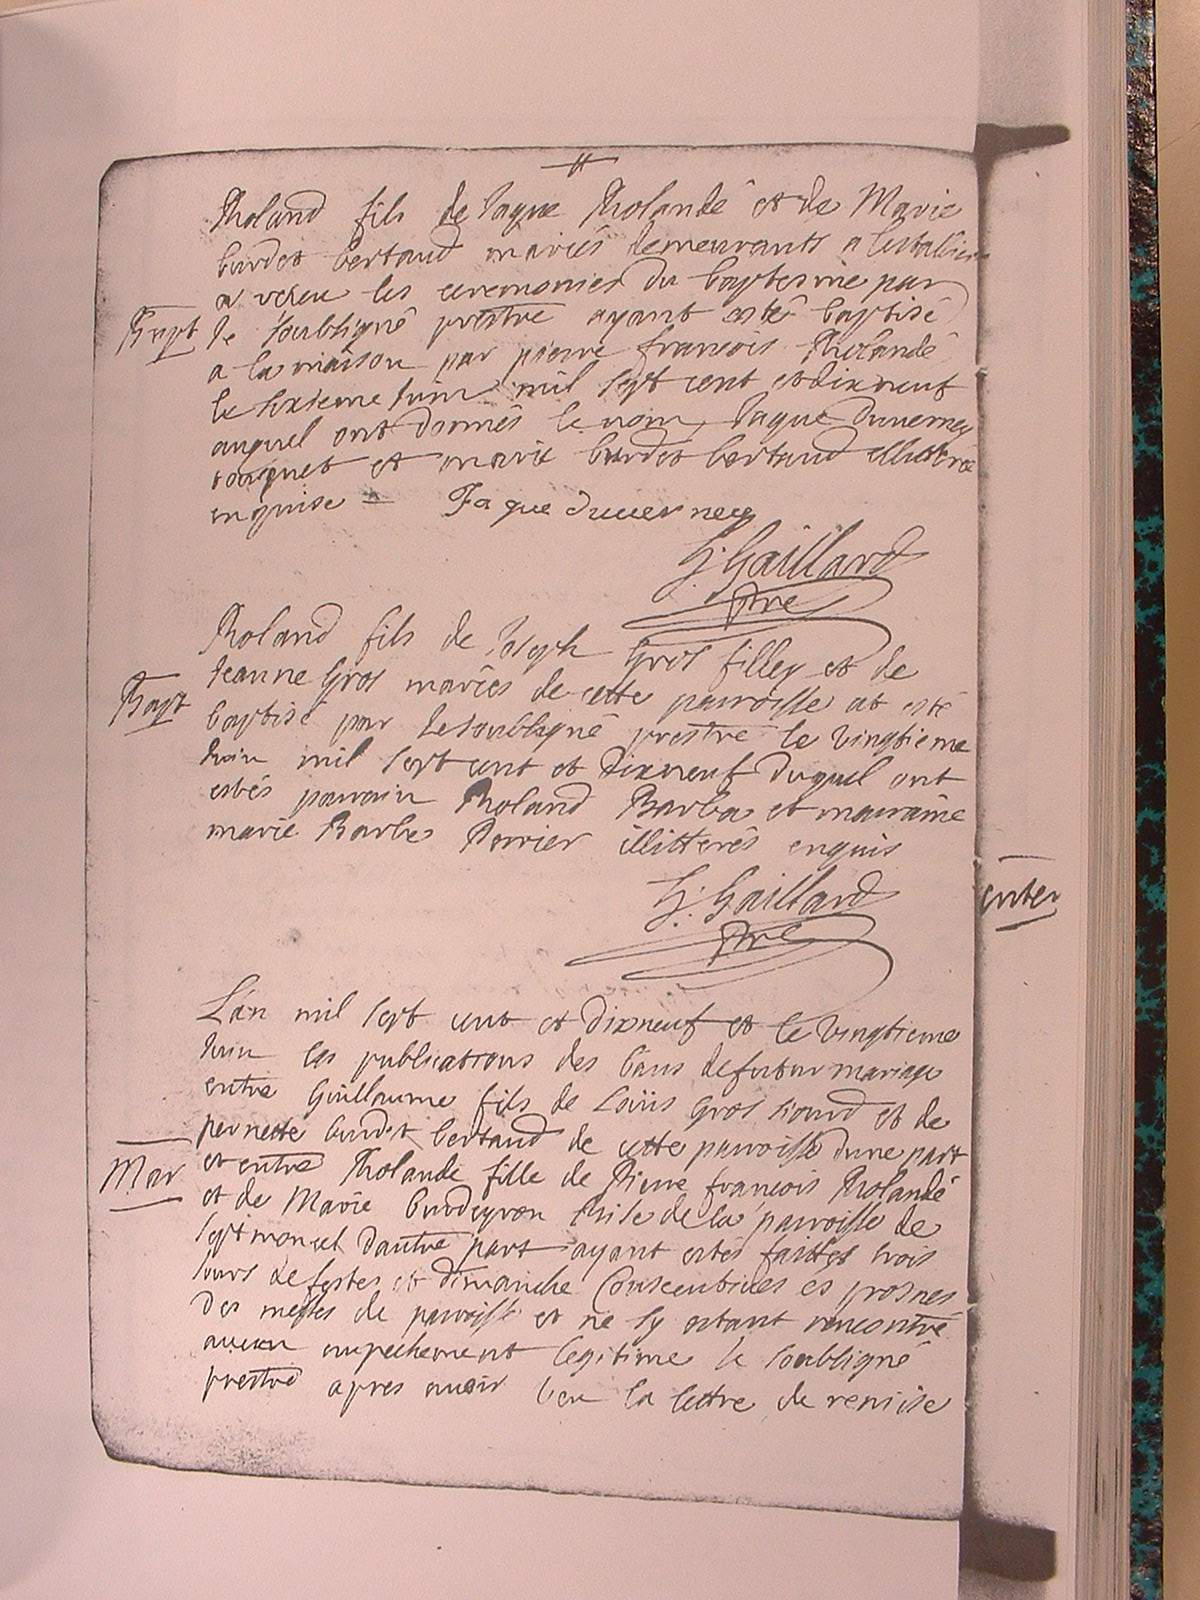 Roland fils de Jaque Rolandé et de Marie
burdet bertaud mariés demeurants a
a receu les ceremonies du baptesme par
Bapt le soubsigné prestre ayant esté baptisé
a la maison par pierre francois Rolandé
le sixieme Juin mil sept cent et dixneuf
auquel ont donnés le nom Jaque Duverney
et marie burdet bertaud
enquise Jaque duuerney
H: Gaillard
Pre
Roland fils de Joseph Gros filley et de
Jeanne Gros mariés de cette parroisse at esté
Bapt baptisé par le soubsigné prestre le vingtieme
Juin mil sept cent et dixneuf duquel ont
estés parrain Roland Barba et marraine
marie Barbe Perrier illitterés enquis
H: Gaillard
Pre
enter
L'an mil sept cent et dixneuf et le vingtieme
Juin les publications des bans de futur mariage
entre Guillaume fils de Loüis gros et de
pernette burdet bertaud de cette parroisse dune part
Mar et entre Rolande fille de Pierre francois Rolandé
et de Marie de la parroisse de
septmoncel dautre part ayant estés faittes trois
Jours de festes et dimanche Consecutives es prosnes
des messes de parroisse et ne sy estant rencontré
aucun empechement legitime le soubsigné
prestre apres avoir veu la lettre de remise